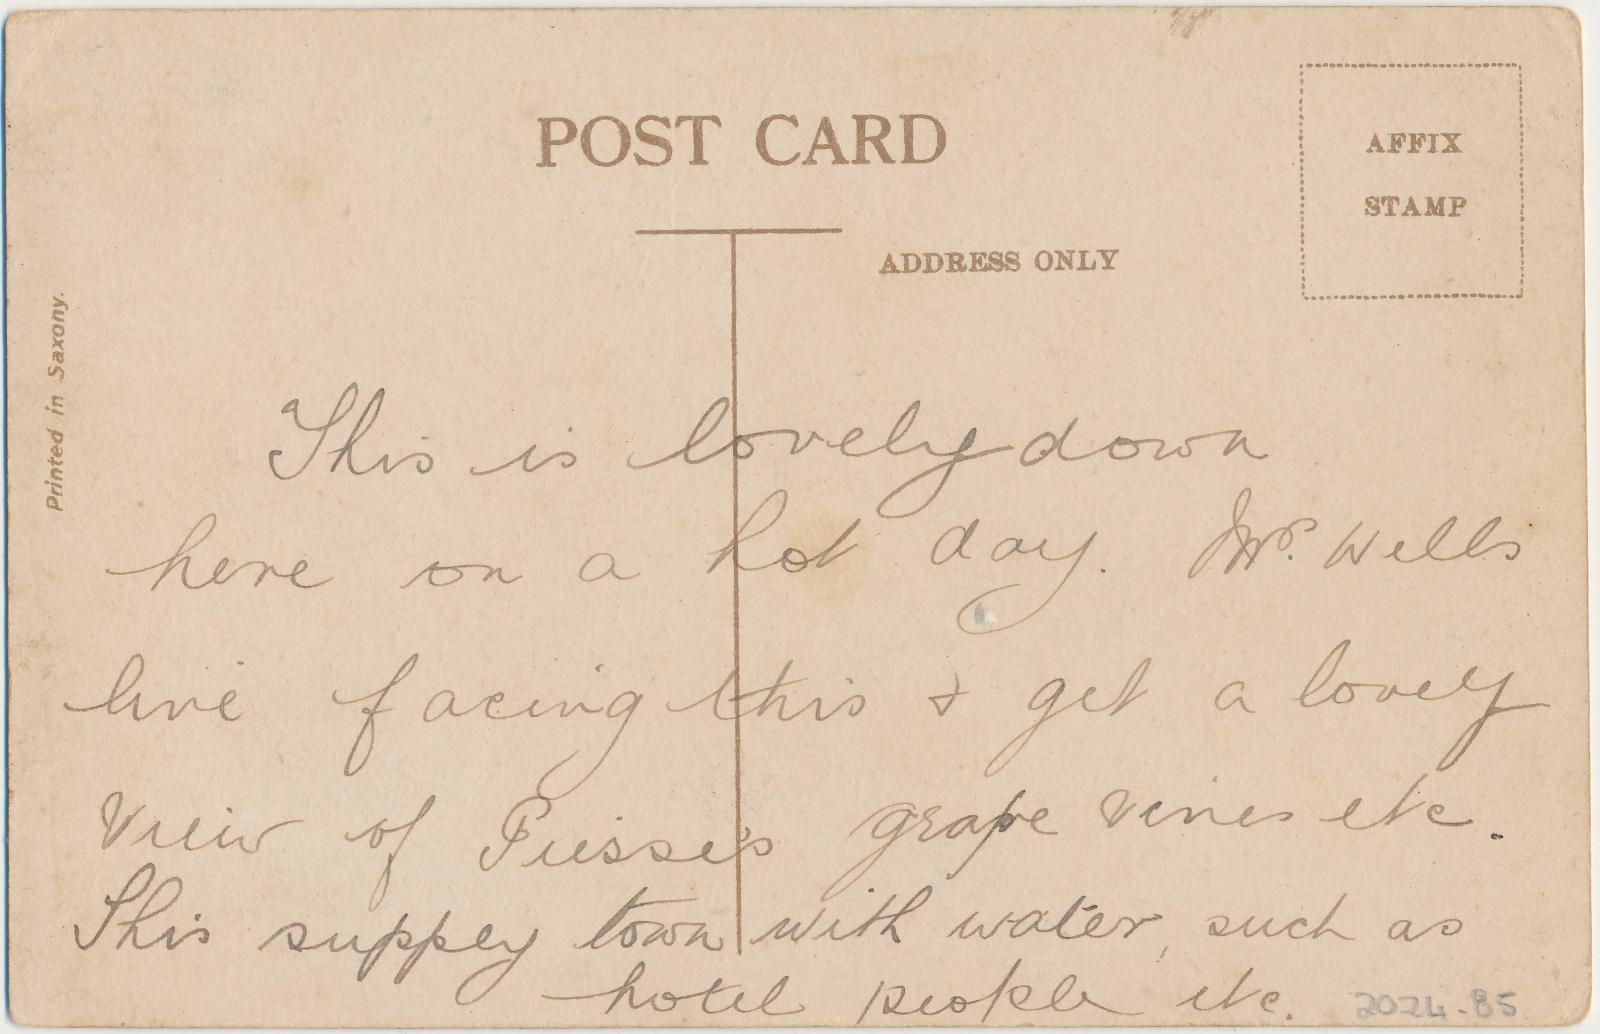 POST CARD
AFFIX
STAMP
ADDRESS ONLY
Printed in Saxony.
This is lovely down
here on a hot day. Mrs. Wells
live facing this & get a lovely
view of Piesse's grape vines etc.
This supply town with water, such as
hotel people etc.
2024-85